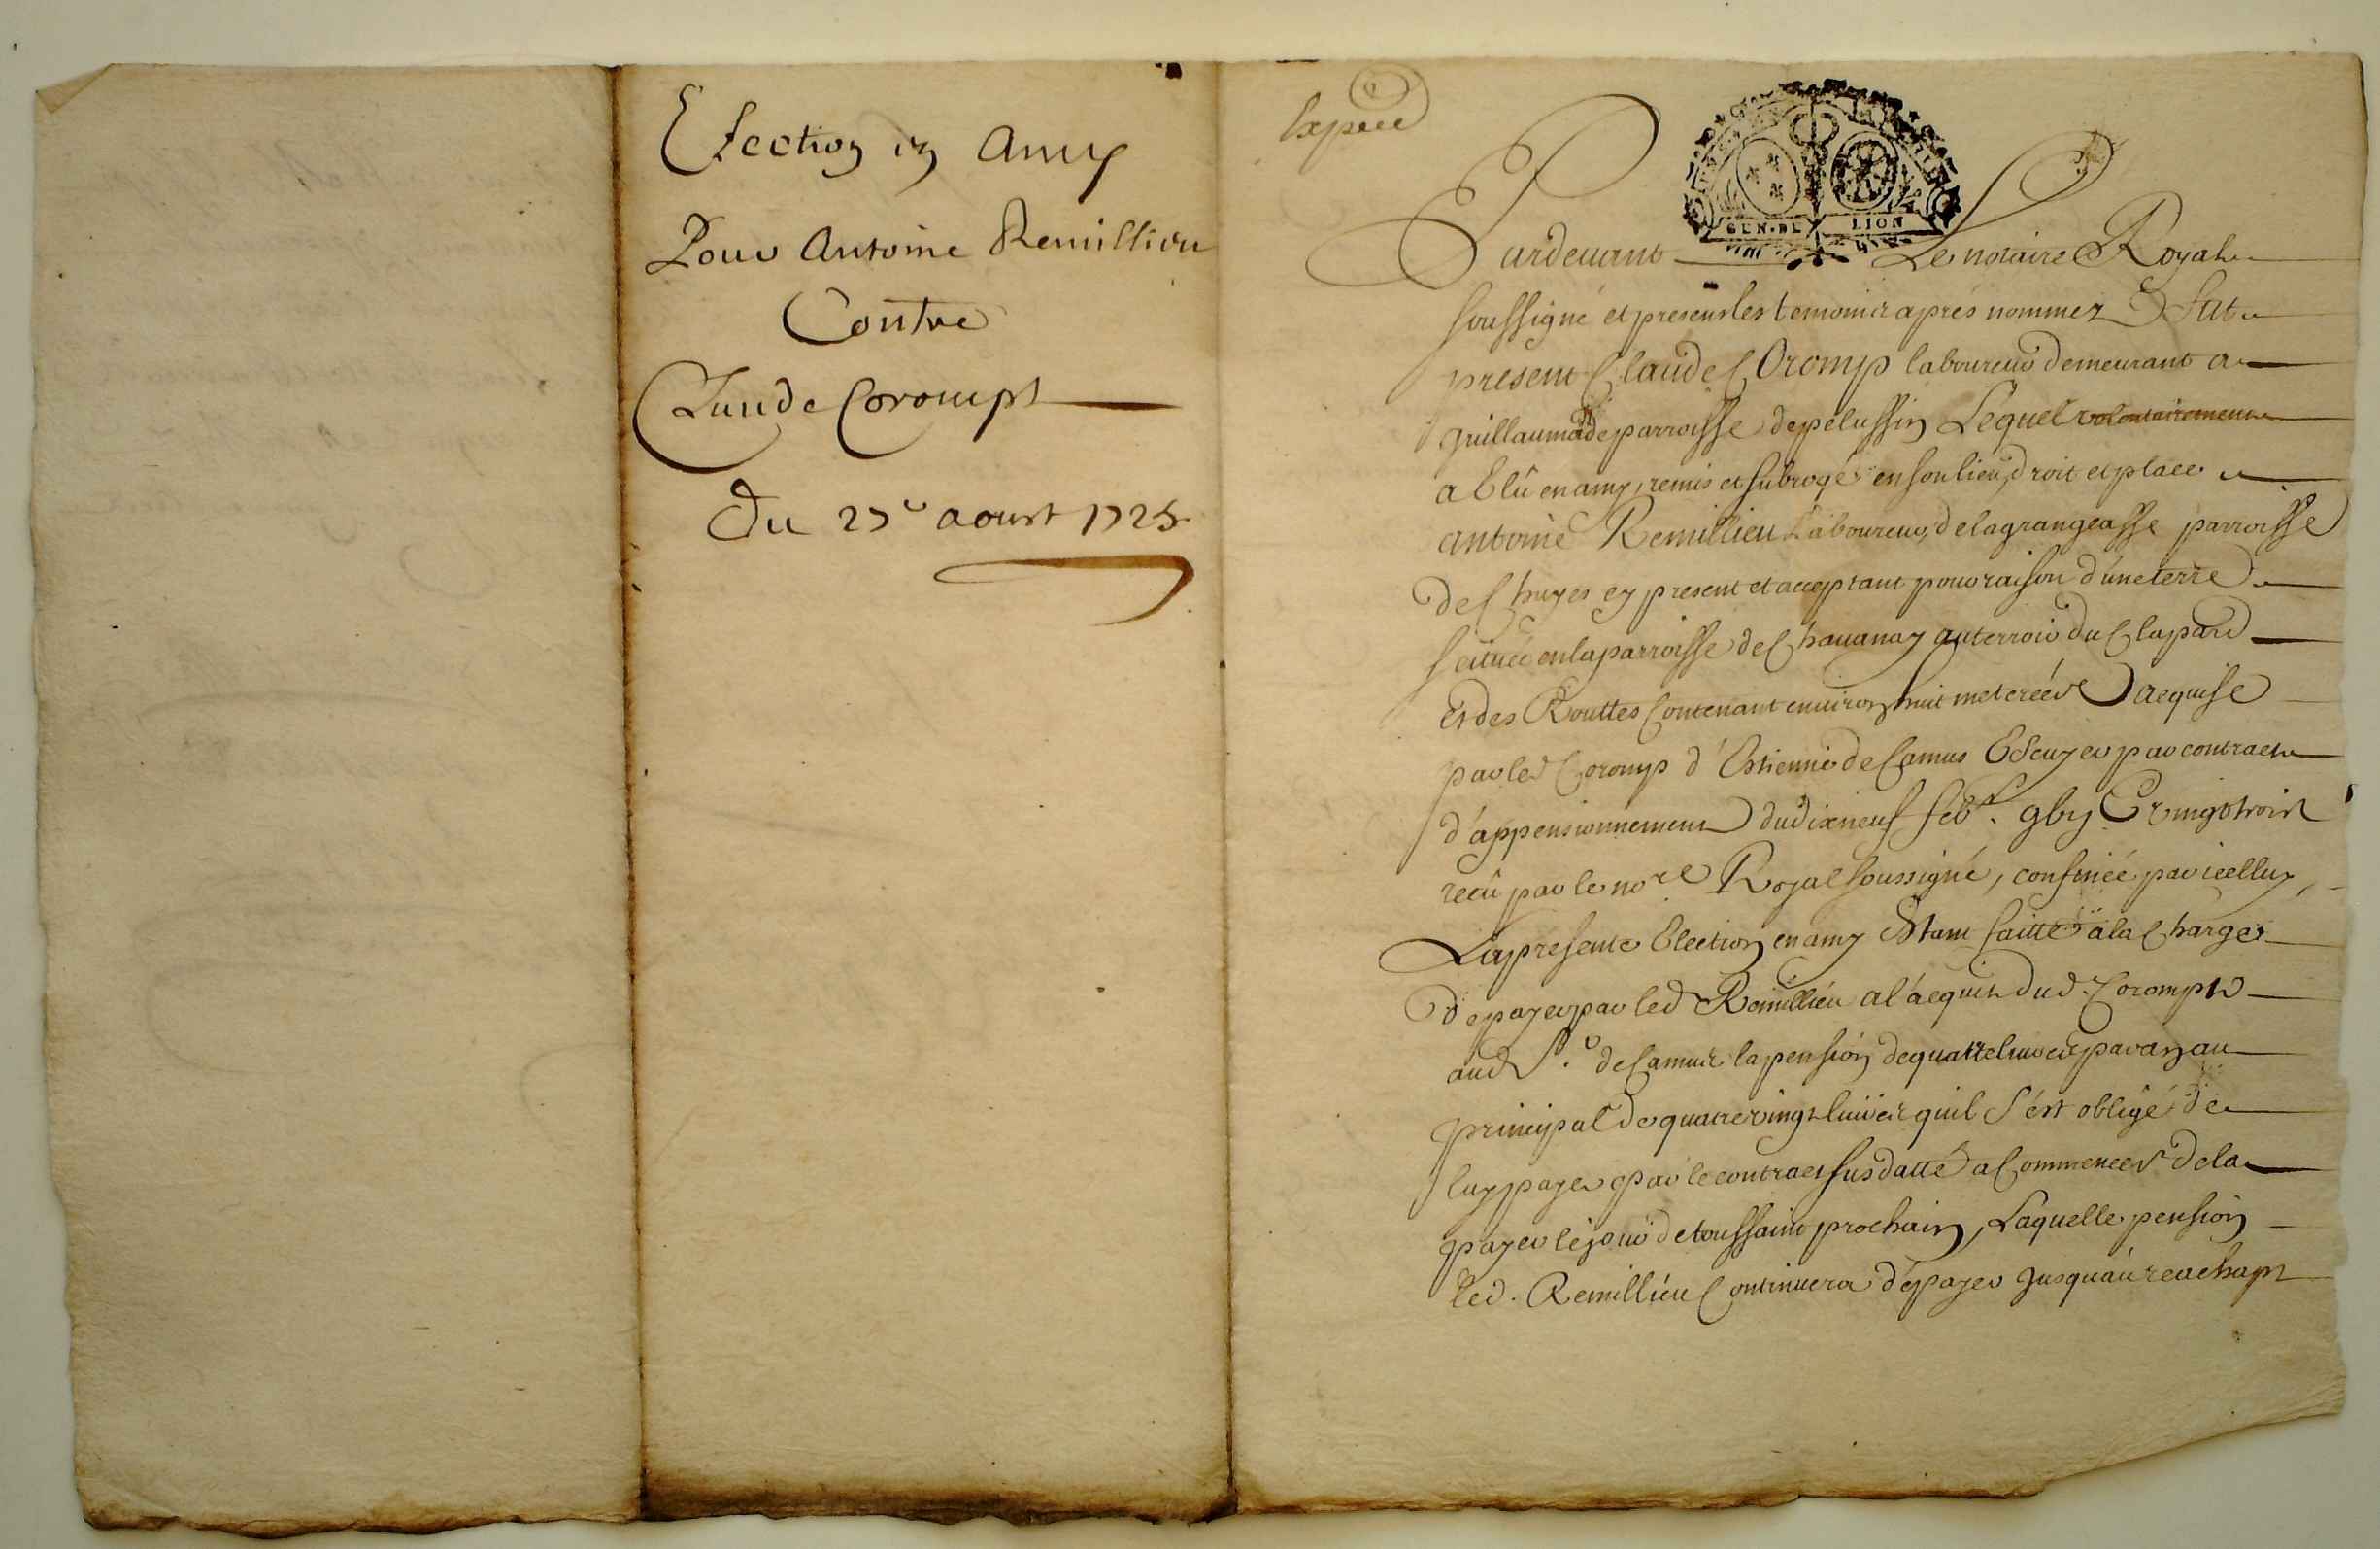 Election en amy
Pour Antoine Remillieu
Contre
Claude Corompt
Du 27e aoust 1725
Expedié
GEN. DE LION
Pardeuant Le notaire Royal
soussigné et presens les temoins aprés nommez Fut
present Claude Coromp laboureur demeurant a
Guillaumade parroisse de pelussin Lequel volontairement
a Elû en amy, remis et subrogé en son lieu, droit et place
antoine Remillieu Laboureur, de lagrangeasse parroisse
de Chuyes cy present et acceptant pour raison d'une terre
scituée en la parroisse de Chauanay au terroir du Clapard
et des Routtes Contenant enuiron huit meterées acquise
par led Coromp d'Estienne de Camus Escuyer par contract
d'appensionnement du dixneuf feb.r vingt trois
recû par le no.re Royal soussigné, confinée par icelluy,
La presente Election en amy Estant faitte a la Charge
de payer par led Remilliéu a l'acquit dud. Corompt
aud S.r de Camus la pension de quattre liures par an au
principal de quatre vingt liures quil s'est obligé de
luy payer par le contract susdatté a Commencer de la
payer le jour de toussaint prochain, Laquelle pension
led. Remilliéu Continuera de payer Jusqu'au reachapt